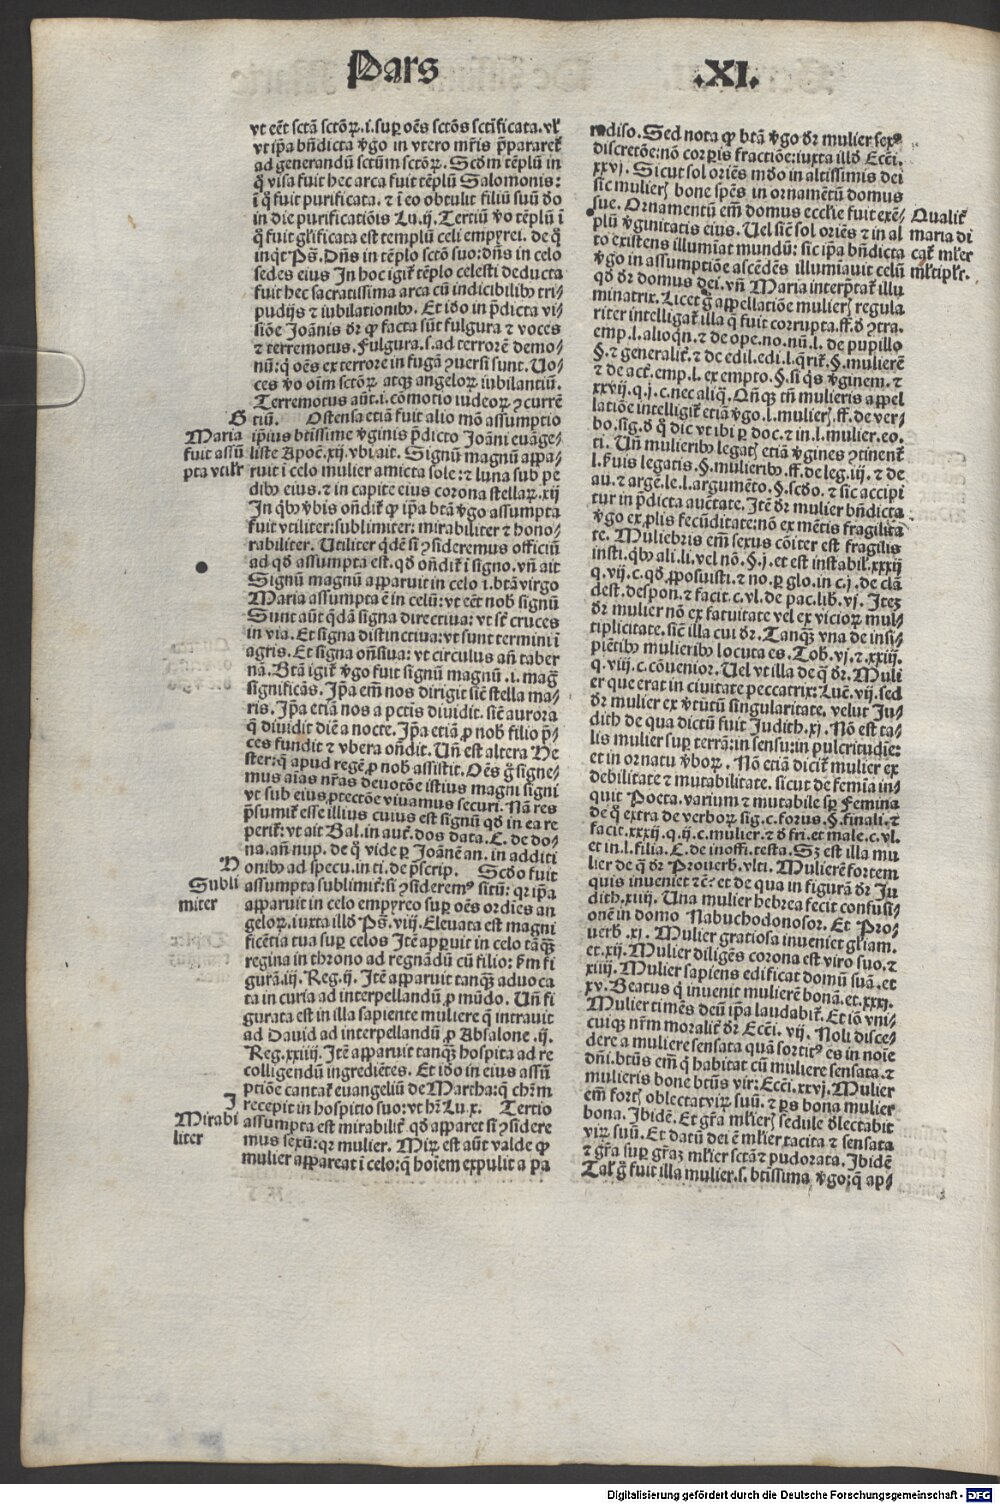 Pars .XI.
vt eēt sctā sctōꝝ.i.suꝑ oēs sctōs sctīficata.vl̄
vt ip̄a bn̄dicta v̄go in vtero mr̄is p̄pararet̄
ad generandū sctūm sctōꝝ. Scd̄m tēplū in
q̄ visa fuit hec arca fuit tēplū Salomonis:
ī q̄ fuit purificata. ⁊ i eo obtulit filiū suū d̄o
in die purificatiōis Lu.ij. Tertiū v̄o tēplū ī
q̄ fuit gl̄ificata est templū celi empyrei. de q̄
inq̄t Ps̄. Dn̄s in tēplo sctō suo: dn̄s in celo
sedes eius In hoc igit̄ tēplo celesti deducta
fuit hec sacratissima arca cū indicibilibꝰ tri-
pudijs ⁊ iubilationibꝰ. Et iđo in p̄dicta vi/
siōe Joānis d̄r ꝙ facta sūt fulgura ⁊ voces
⁊ terremotus. Fulgura.s.ad terrorē demo/
nū: q̄ oēs ex terrore in fugā ꝯuersi sunt. Uo/
ces v̄o oīm sctōꝝ atqꝫ angeloꝝ iubilantiū.
Terremotus aūt.i.cōmotio iudeoꝝ ꝯcurrē
G tiū. Ostensa etiā fuit alio mō assumptio
Maria ip̄ius btissime v̄ginis p̄dicto Joāni euāge/
fuit assū liste Apoc̄.xij. vbi ait. Signū magnū appa/
pta vtilr̄ ruit ī celo mulier amicta sole: ⁊ luna sub pe
dibꝰ eius. ⁊ in capite eius corona stellaꝝ.xij
In qbꝰ v̄bis on̄dit̄ ꝙ ip̄a btā v̄go assumpta
fuit vtiliter: sublimiter: mirabiliter ⁊ hono/
rabiliter. Utiliter q̄dē si ꝯsideremus officiū
ad qđ assumpta est. qđ on̄dit̄ ī signo. vn̄ ait
Signū magnū apparuit in celo .i. btā virgo
Maria assumpta ē in celū: vt eēt nob̄ signū
Sunt aūt q̄dā signa directiua: vt sūt cruces
in via. Et signa distinctiua: vt sunt termini ī
agris. Et signa on̄siua: vt circulus an̄ taber
na. Btā igit̄ v̄go fuit signū magnū .i. mag̃
significās. Ip̄a em̄ nos dirigit sic̄ stella ma/
ris. Ip̄a etiā nos a pctis diuidit. sic̄ aurora
q̄ diuidit diē a nocte. Ip̄a etiā ꝓ nob̄ filio p̄/
ces fundit ⁊ vbera on̄dit. Un̄ est altera He
ster: q̄ apud regē ꝓ nob̄ assistit. Oēs g̃ signe/
mus aīas nr̄as deuotōe istius magni signi
vt sub eius ꝓtectōe viuamus securi. Nā res
p̄sumit̄ esse illius cuius est signū qđ in ea re
perit̄: vt ait Bal. in auct̄. dos data. C. de do/
na. an̄ nup. de q̄ vide ꝑ Joānē an. in additi
H onibꝰ ad specu. in ti. de p̄scrip. Scđo fuit
Subli assumpta sublimit̄: si ꝯsideremꝰ sitū: qꝛ ip̄a
miter apparuit in celo empyreo suꝑ oēs ordies an
geloꝝ. iuxta illđ Ps̄. viij. Eleuata est magni
ficētia tua suꝑ celos Itē apparuit in celo tāqꝫ
regina in throno ad regnādū cū filio: s̄m fi
gurā.iij. Reg.ij. Itē apparuit tanqꝫ aduoca
ta in curia ad interpellandū ꝓ mūdo. Un̄ fi
gurata est in illa sapiente muliere q̄ intrauit
ad Dauid ad interpellandū ꝓ Absalone .ij.
Reg.xiiij. Itē apparuit tanqꝫ hospita ad re
colligendū ingrediētes. Et iđo in eius assū
ptiōe cantat̄ euangeliū de Martha: q̄ chr̄m
I recepit in hospitio suo: vt hr̄ Lu.x. Tertio
Mirabi assumpta est mirabilit̄. qđ apparet si ꝯsidere
liter mus sexū: qꝛ mulier. Miꝝ est aūt valde ꝙ
mulier appareat ī celo: q̄ hoīem expulit a pa
radiso. Sed nota ꝙ btā v̄go d̄r mulier sexꝰ
discretōe: nō corꝑis fractiōe: iuxta illđ Ecc̄i.
xxvj. Sicut sol oriēs mđo in altissimis dei
sic mulierꝭ bone spēs in ornamētū domus
sue. Ornamentū em̄ domus ecclie fuit exē/ Qualit̄
plū v̄ginitatis eius. Uel sic̄ sol oriēs ⁊ in al maria di
to existens illumīat mundū: sic ip̄a bn̄dicta cat̄ ml̄er
v̄go in assumptiōe ascēdēs illumiauit celū ml̄tiplr̄.
qđ d̄r domus dei. vn̄ Maria interp̄tat̄ illu
minatrix. Licet g̃ appellatiōe mulierꝭ regula
riter intelligat̄ illa q̄ fuit corrupta. ff. đ ꝯtra.
emp. l. alioqn̄. ⁊ de ope. no. nū. l. de pupillo
§. ⁊ generalit̄. ⁊ de edil. edi. l. q̄rit̄. §. mulierē
⁊ de act̄. emp. l. ex empto. §. si qs v̄ginem. ⁊
xxvij. q. j. c. nec aliq̄. Qn̄qꝫ tn̄ mulieris appel
latiōe intelligit̄ etiā v̄go. l. mulierꝭ. ff. de ver/
bo. sig. đ q̄ dic vt ibi ꝑ doc. ⁊ in. l. mulier. eo.
ti. Un̄ mulieribꝰ legatꝭ etiā v̄gines ꝯtinent̄
l. s̄uis legatis. §. mulieribꝰ. ff. de leg. iij. ⁊ de
au. ⁊ argē. le. l. argumēto. §. scđo. ⁊ sic accipi
tur in p̄dicta auc̄tate. Itē d̄r mulier bn̄dicta
v̄go ex ꝓlis fecūditate: nō ex mētis fragilita
te. Muliebris em̄ sexus cōiter est fragilis
insti. qbꝰ ali. li. vel nō. §. j. et est instabil̄. xxxij
q. vij. c. qđ ꝓposuisti. ⁊ no. ꝑ glo. in c. j. de clā
dest. despon. ⁊ facit. c. vl. de pac. lib. vj. Iteꝫ
d̄r mulier nō ex fatuitate vel ex vicioꝝ mul/
tiplicitate. sic̄ illa cui d̄r. Tanqꝫ vna de insi/
piētibꝰ mulieribꝰ locuta es. Tob. vj. ⁊ xxiij.
q. viij. c. cōuenior. Uel vt illa de q̄ d̄r. Muli
er que erat in ciuitate peccatrix: Luc̄. vij. sed
d̄r mulier ex v̄tutū singularitate. velut Ju/
dith de qua dictū fuit Judith. xj. Nō est ta/
lis mulier suꝑ terrā: in sensu: in pulcritudīe:
et in ornatu v̄boꝝ. Nō etiā dicit̄ mulier ex
debilitate ⁊ mutabilitate. sicut de femīa in/
quit Poeta. varium ⁊ mutabile sꝑ Femina
de q̄ extra de verboꝝ sig. c. forus. §. finali. ⁊
facit. xxxij. q. ij. c. mulier. ⁊ đ fri. et male. c. vl.
et in. l. filia. C. de inoffi. testa. Sꝫ est illa mu
lier de q̄ d̄r Prouerb̄. vlti. Mulierē fortem
quis inueniet ⁊c̄? et de qua in figurā d̄r Ju
dith. xiiij. Una mulier hebrea fecit confusi/
onē in domo Nabuchodonosor. Et Pro/
uerb̄. xj. Mulier gratiosa inueniet gl̄iam.
et. xij. Mulier diligēs corona est viro suo. ⁊
xiiij. Mulier sapiens edificat domū suā. et
xv. Beatus q̄ inuenit mulierē bonā. et. xxxj.
Mulier timēs deū ip̄a laudabit̄. Et iō vni/
cuiqꝫ nr̄m moralit̄ d̄r Ecc̄i. vij. Noli disce/
dere a muliere sensata quā sortitꝰ es in noīe
dn̄i. btūs em̄ q̄ habitat cū muliere sensata. ⁊
mulieris bone btūs vir: Ecc̄i. xxvj. Mulier
em̄ fortꝭ oblectat viꝝ suū. ⁊ ꝑs bona mulier
bona. Ibidē. Et gr̄a ml̄ierꝭ sedule đlectabit
viꝝ suū. Et datū dei ē ml̄ier tacita ⁊ sensata
⁊ gr̄a suꝑ gr̄aꝫ ml̄ier sctā ⁊ pudorata. Ibidē
Tal̄ g̃ fuit illa mulier. s. btissima v̄go: q̄ ap/
Digitalisierung gefördert durch die Deutsche Forschungsgemeinschaft - DFG